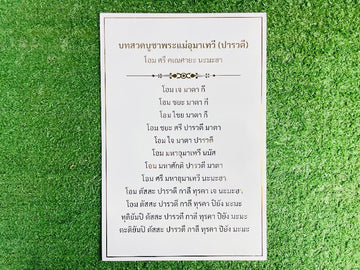 บทสวดบูชาพระแม่อุมาเทวี (ปารวตี)
โอม ศรี คเณศายะ นะมะฮา
โอม เจ มาตา กี
โอม ชยะ มาตา กี
โอม ไชย มาตา กี
โอม ชยะ ศรี ปารวตี มาตา
โอม ไจ มาตา ปารวตี
โอม มหาอุมาเทวี นมัส
โอม มหาศักติ ปารวตี มาตา
โอม ศรี มหาอุมาเทวี นะมะฮา
โอม ตัสสะ ปารวตี กาลี ทุรคา เจ นะมะฮา
โอม ตัสสะ ปารวตี กาลี ทุรคา ปิยัง มะมะ
ทุติยัมปิ ตัสสะ ปารวตี กาลี ทุรคา ปิยัง มะมะ
ตะติยัมปิ ตัสสะ ปารวตี กาลี ทุรคา ปิยัง มะมะ